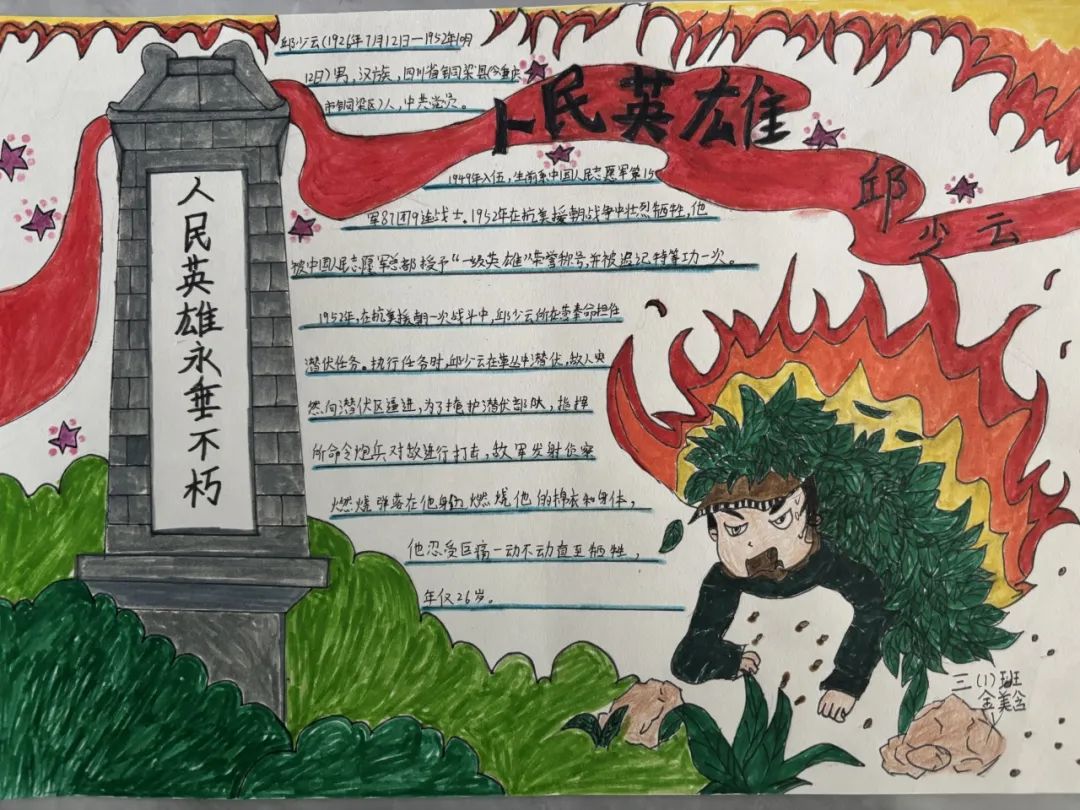 邱少云(1926年7月12日—1952年10月
12日)男,汉族,四川省铜梁县(今重庆
市铜梁区)人,中共党员。
人民英雄
邱少云
1949年入伍,生前系中国人民志愿军第15
军87团9连战士。1952年在抗美援朝战争中壮烈牺牲,他
被中国人民志愿军总部授予“一级英雄”荣誉称号,并被追记特等功一次。
1952年,在抗美援朝一次战斗中,邱少云所在营奉命担任
潜伏任务。执行任务时,邱少云在草丛中潜伏,敌人突
然向潜伏区逼进,为了掩护潜伏部队,指挥
所命令炮兵对敌进行打击,敌军发射侦察
燃烧弹落在他身边燃烧他的棉衣和身体,
他忍受巨痛一动不动直至牺牲,
年仅26岁。
人民英雄永垂不朽
三(1)班
金美含